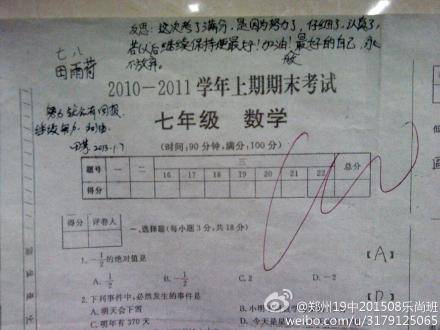 反思：这次考了满分，是因为努力了，仔细了，认真了，
若以后继续保持便最好！加油！最好的自己，永
不放弃。
七八
田雨荷
2010－2011学年上期期末考试
努力就会有回报
继续努力 加油
2013.1.7
七年级 数学
（时间：90分钟，满分：100分）
题号 一 二 三 总分
16 17 18 19 20 21 22
得分
得分 评卷人
一、选择题（每小题3分，共18分）
1. －1/2的绝对值是 【A】
A. 1/2 B. －1/2 C. 2 D. －2
2. 下列事件中，必然发生的事件是 【D】
A. 明天会下雪 B. 小明
C. 明年有370天 D. 今天是星
@郑州19中201508乐尚班
weibo.com/u/3179125065